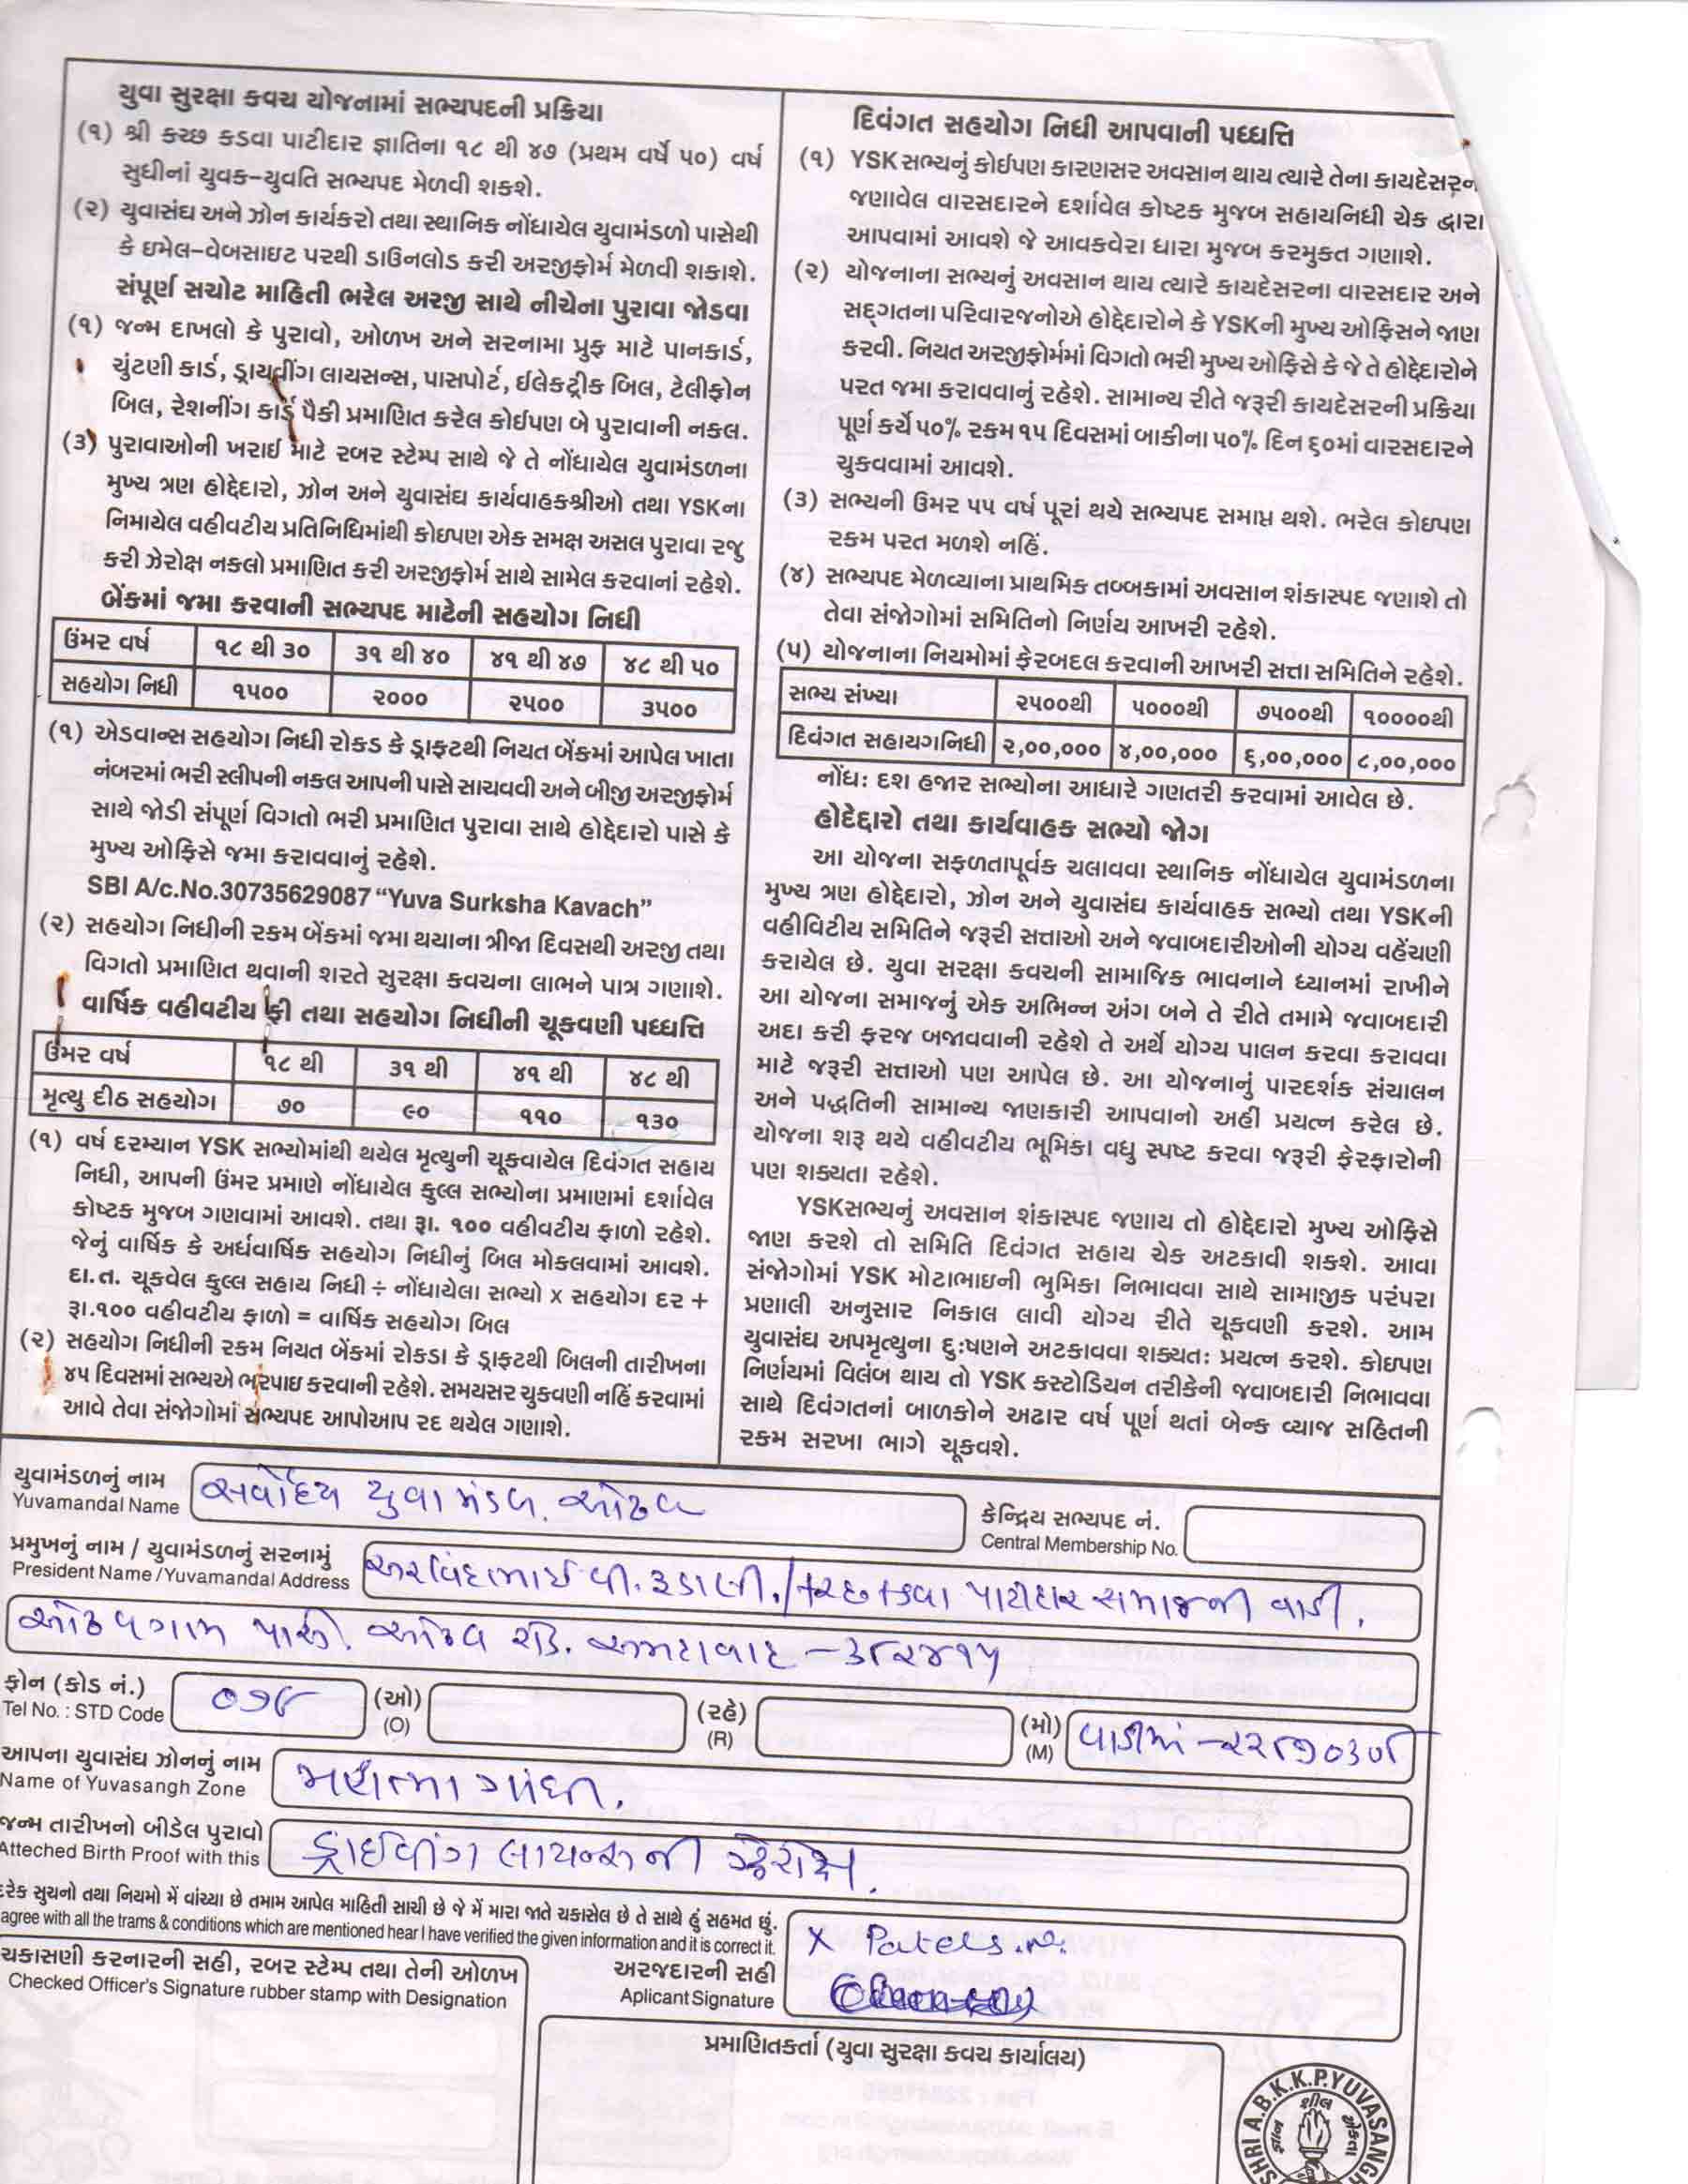 યુવા સુરક્ષા કવચ યોજનામાં સભ્યપદની પ્રક્રિયા
(૧) શ્રી કચ્છ કડવા પાટીદાર જ્ઞાતિના ૧૮ થી ૪૭ (પ્રથમ વર્ષે ૫૦) વર્ષ
સુધીનાં યુવક-યુવતિ સભ્યપદ મેળવી શકશે.
(૨) યુવાસંઘ અને ઝોન કાર્યકરો તથા સ્થાનિક નોંધાયેલ યુવામંડળો પાસેથી
કે ઇમેલ-વેબસાઇટ પરથી ડાઉનલોડ કરી અરજીફોર્મ મેળવી શકાશે.
સંપૂર્ણ સચોટ માહિતી ભરેલ અરજી સાથે નીચેના પુરાવા જોડવા
(૧) જન્મ દાખલો કે પુરાવો, ઓળખ અને સરનામા પ્રુફ માટે પાનકાર્ડ,
ચુંટણી કાર્ડ, ડ્રાયવીંગ લાયસન્સ, પાસપોર્ટ, ઈલેકટ્રીક બિલ, ટેલીફોન
બિલ, રેશનીંગ કાર્ડ પૈકી પ્રમાણિત કરેલ કોઈપણ બે પુરાવાની નકલ.
(૩) પુરાવાઓની ખરાઈ માટે રબર સ્ટેમ્પ સાથે જે તે નોંધાયેલ યુવામંડળના
મુખ્ય ત્રણ હોદ્દેદારો, ઝોન અને યુવાસંઘ કાર્યવાહકશ્રીઓ તથા YSKના
નિમાયેલ વહીવટીય પ્રતિનિધિમાંથી કોઇપણ એક સમક્ષ અસલ પુરાવા રજુ
કરી ઝેરોક્ષ નકલો પ્રમાણિત કરી અરજીફોર્મ સાથે સામેલ કરવાનાં રહેશે.
બેંકમાં જમા કરવાની સભ્યપદ માટેની સહયોગ નિધી
ઉંમર વર્ષ ૧૮ થી ૩૦ ૩૧ થી ૪૦ ૪૧ થી ૪૭ ૪૮ થી ૫૦
સહયોગ નિધી ૧૫૦૦ ૨૦૦૦ ૨૫૦૦ ૩૫૦૦
(૧) એડવાન્સ સહયોગ નિધી રોકડ કે ડ્રાફટથી નિયત બેંકમાં આપેલ ખાતા
નંબરમાં ભરી સ્લીપની નકલ આપની પાસે સાચવવી અને બીજી અરજીફોર્મ
સાથે જોડી સંપૂર્ણ વિગતો ભરી પ્રમાણિત પુરાવા સાથે હોદ્દેદારો પાસે કે
મુખ્ય ઓફિસે જમા કરાવવાનું રહેશે.
SBI A/c.No.30735629087 “Yuva Surksha Kavach”
(૨) સહયોગ નિધીની રકમ બેંકમાં જમા થયાના ત્રીજા દિવસથી અરજી તથા
વિગતો પ્રમાણિત થવાની શરતે સુરક્ષા કવચના લાભને પાત્ર ગણાશે.
વાર્ષિક વહીવટીય ફી તથા સહયોગ નિધીની ચૂકવણી પધ્ધતિ
ઉંમર વર્ષ ૧૮ થી ૩૧ થી ૪૧ થી ૪૮ થી
મૃત્યુ દીઠ સહયોગ ૭૦ ૯૦ ૧૧૦ ૧૩૦
(૧) વર્ષ દરમ્યાન YSK સભ્યોમાંથી થયેલ મૃત્યુની ચૂકવાયેલ દિવંગત સહાય
નિધી, આપની ઉંમર પ્રમાણે નોંધાયેલ કુલ્લ સભ્યોના પ્રમાણમાં દર્શાવેલ
કોષ્ટક મુજબ ગણવામાં આવશે. તથા રૂા. ૧૦૦ વહીવટીય ફાળો રહેશે.
જેનું વાર્ષિક કે અર્ધવાર્ષિક સહયોગ નિધીનું બિલ મોકલવામાં આવશે.
દા.ત. ચૂકવેલ કુલ્લ સહાય નિધી ÷ નોંધાયેલા સભ્યો x સહયોગ દર +
રૂા.૧૦૦ વહીવટીય ફાળો = વાર્ષિક સહયોગ બિલ
(૨) સહયોગ નિધીની રકમ નિયત બેંકમાં રોકડા કે ડ્રાફટથી બિલની તારીખના
૪૫ દિવસમાં સભ્યએ ભરપાઇ કરવાની રહેશે. સમયસર ચુકવણી નહિં કરવામાં
આવે તેવા સંજોગોમાં સભ્યપદ આપોઆપ રદ થયેલ ગણાશે.
દિવંગત સહયોગ નિધી આપવાની પધ્ધતિ
(૧) YSK સભ્યનું કોઈપણ કારણસર અવસાન થાય ત્યારે તેના કાયદેસરન
જણાવેલ વારસદારને દર્શાવેલ કોષ્ટક મુજબ સહાયનિધી ચેક દ્વારા
આપવામાં આવશે જે આવકવેરા ધારા મુજબ કરમુકત ગણાશે.
(૨) યોજનાના સભ્યનું અવસાન થાય ત્યારે કાયદેસરના વારસદાર અને
સદ્‌ગતના પરિવારજનોએ હોદ્દેદારોને કે YSKની મુખ્ય ઓફિસને જાણ
કરવી. નિયત અરજીફોર્મમાં વિગતો ભરી મુખ્ય ઓફિસે કે જે તે હોદ્દેદારોને
પરત જમા કરાવવાનું રહેશે. સામાન્ય રીતે જરૂરી કાયદેસરની પ્રક્રિયા
પૂર્ણ કર્યે ૫૦% રકમ ૧૫ દિવસમાં બાકીના ૫૦% દિન ૬૦માં વારસદારને
ચુકવવામાં આવશે.
(૩) સભ્યની ઉમર ૫૫ વર્ષ પૂરાં થયે સભ્યપદ સમાપ્ત થશે. ભરેલ કોઇપણ
રકમ પરત મળશે નહિં.
(૪) સભ્યપદ મેળવ્યાના પ્રાથમિક તબ્બકામાં અવસાન શંકાસ્પદ જણાશે તો
તેવા સંજોગોમાં સમિતિનો નિર્ણય આખરી રહેશે.
(૫) યોજનાના નિયમોમાં ફેરબદલ કરવાની આખરી સત્તા સમિતિને રહેશે.
સભ્ય સંખ્યા ૨૫૦૦થી ૫૦૦૦થી ૭૫૦૦થી ૧૦૦૦૦થી
દિવંગત સહાયગનિધી ૨,૦૦,૦૦૦ ૪,૦૦,૦૦૦ ૬,૦૦,૦૦૦ ૮,૦૦,૦૦૦
નોંધ: દશ હજાર સભ્યોના આધારે ગણતરી કરવામાં આવેલ છે.
હોદેદ્દારો તથા કાર્યવાહક સભ્યો જોગ
આ યોજના સફળતાપૂર્વક ચલાવવા સ્થાનિક નોંધાયેલ યુવામંડળના
મુખ્ય ત્રણ હોદ્દેદારો, ઝોન અને યુવાસંઘ કાર્યવાહક સભ્યો તથા YSKની
વહીવિટીય સમિતિને જરૂરી સત્તાઓ અને જવાબદારીઓની યોગ્ય વહેંચણી
કરાયેલ છે. યુવા સરક્ષા કવચની સામાજિક ભાવનાને ધ્યાનમાં રાખીને
આ યોજના સમાજનું એક અભિન્ન અંગ બને તે રીતે તમામે જવાબદારી
અદા કરી ફરજ બજાવવાની રહેશે તે અર્થે યોગ્ય પાલન કરવા કરાવવા
માટે જરૂરી સત્તાઓ પણ આપેલ છે. આ યોજનાનું પારદર્શક સંચાલન
અને પદ્ધતિની સામાન્ય જાણકારી આપવાનો અહીં પ્રયત્ન કરેલ છે.
યોજના શરૂ થયે વહીવટીય ભૂમિકા વધુ સ્પષ્ટ કરવા જરૂરી ફેરફારોની
પણ શક્યતા રહેશે.
YSKસભ્યનું અવસાન શંકાસ્પદ જણાય તો હોદ્દેદારો મુખ્ય ઓફિસે
જાણ કરશે તો સમિતિ દિવંગત સહાય ચેક અટકાવી શકશે. આવા
સંજોગોમાં YSK મોટાભાઇની ભુમિકા નિભાવવા સાથે સામાજીક પરંપરા
પ્રણાલી અનુસાર નિકાલ લાવી યોગ્ય રીતે ચૂકવણી કરશે. આમ
યુવાસંઘ અપમૃત્યુના દુઃષણને અટકાવવા શક્યતઃ પ્રયત્ન કરશે. કોઇપણ
નિર્ણયમાં વિલંબ થાય તો YSK કસ્ટોડિયન તરીકેની જવાબદારી નિભાવવા
સાથે દિવંગતનાં બાળકોને અઢાર વર્ષ પૂર્ણ થતાં બેન્ક વ્યાજ સહિતની
રકમ સરખા ભાગે ચૂકવશે.
યુવામંડળનું નામ સર્વોદય યુવા મંડળ. ઓઢવ
Yuvamandal Name
કેન્દ્રિય સભ્યપદ નં.
Central Membership No.
પ્રમુખનું નામ / યુવામંડળનું સરનામું અરવિંદભાઈ વી. રૂડાણી./કચ્છ કડવા પાટીદાર સમાજની વાડી.
President Name /Yuvamandal Address
ઓઢવગામ પાસે. ઓઢવ રોડ. અમદાવાદ - ૩૮૨૪૧૫
ફોન (કોડ નં.) ૦૭૯ (ઓ) (રહે) (મો) વાડીમાં - ૨૨૮૭૦૩૦૯
Tel No. : STD Code (O) (R) (M)
આપના યુવાસંઘ ઝોનનું નામ મહાત્મા ગાંધી.
Name of Yuvasangh Zone
જન્મ તારીખનો બીડેલ પુરાવો ડ્રાઈવીંગ લાયન્સની ઝેરોક્ષ.
Atteched Birth Proof with this
દરેક સુચનો તથા નિયમો મેં વાંચ્યા છે તમામ આપેલ માહિતી સાચી છે જે મેં મારા જાતે ચકાસેલ છે તે સાથે હું સહમત છું.
agree with all the trams & conditions which are mentioned hear I have verified the given information and it is correct it.
X Patel S.N.
ચકાસણી કરનારની સહી, રબર સ્ટેમ્પ તથા તેની ઓળખ
Checked Officer's Signature rubber stamp with Designation
અરજદારની સહી
Aplicant Signature
પ્રમાણિતકર્તા (યુવા સુરક્ષા કવચ કાર્યાલય)
SHRI A.B.K.K.P.YUVASANGH
જ્ઞાન શીલ એકતા